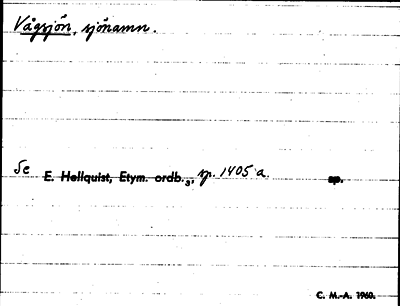 Vågsjön, sjönamn.
Se E. Hellquist, Etym. ordb.₃, sp. 1405 a. sp.
C. M.-A. 1960.